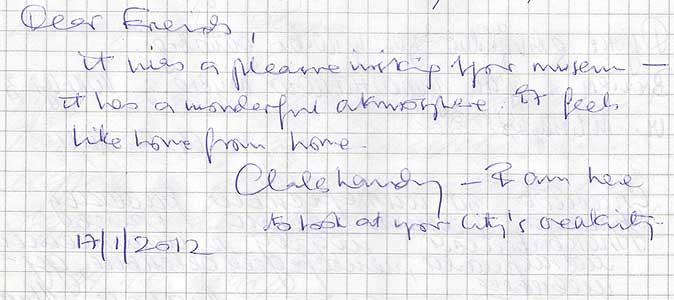 Dear Friends,
it was a pleasure visiting your museum —
it has a wonderful atmosphere. It feels
like home from home.
— I am here
to look at your city's creativity.
17/1/2012